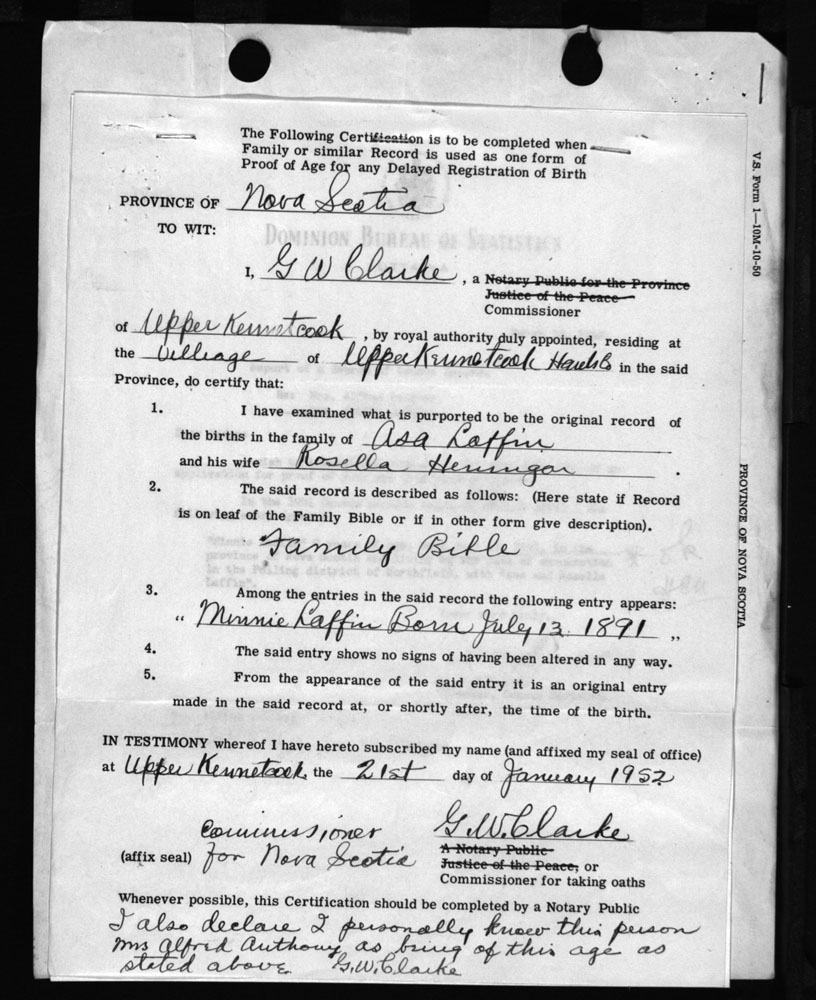 The Following Certification is to be completed when
Family or similar Record is used as one form of
Proof of Age for any Delayed Registration of Birth
PROVINCE OF Nova Scotia
TO WIT:
DOMINION BUREAU OF STATISTICS
I, G W Clarke, a Notary Public for the Province
Justice of the Peace
Commissioner
of Upper Kennetcook, by royal authority duly appointed, residing at
the Villeage of Upper Kennetcook Hants in the said
Province, do certify that:
1. I have examined what is purported to be the original record of
the births in the family of Asa Laffin
and his wife Rosella Heningar.
2. The said record is described as follows: (Here state if Record
is on leaf of the Family Bible or if in other form give description).
Family Bible
3. Among the entries in the said record the following entry appears:
" Minnie Laffin Born July 13. 1891 "
4. The said entry shows no signs of having been altered in any way.
5. From the appearance of the said entry it is an original entry
made in the said record at, or shortly after, the time of the birth.
IN TESTIMONY whereof I have hereto subscribed my name (and affixed my seal of office)
at Upper Kennetcook, the 21st day of January 1952
commissioner G. W. Clarke
(affix seal) for Nova Scotia A Notary Public
Justice of the Peace, or
Commissioner for taking oaths
Whenever possible, this Certification should be completed by a Notary Public
I also declare I personally know this person
Mrs Alfred Anthony as being of this age as
stated above. G. W. Clarke
V.S. Form 1—10M-10-50
PROVINCE OF NOVA SCOTIA